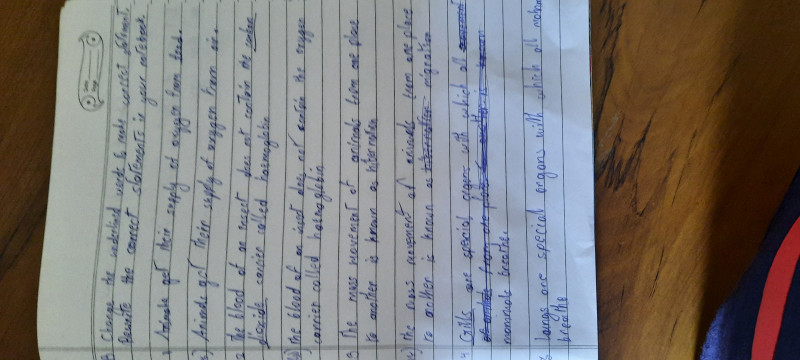 Change the underlined words to make correct statement.
Rewrite the correct statements in your notebook
Animals get their supply of oxygen from food.
Animals get their supply of oxygen from air.
The blood of an insect does not contain the carbon
dioxide carrier called haemoglobin
The blood of an insect does not contain the oxygen
carrier called haemoglobin
The mass movement of animals from one place
to another is known as hibernation
The mass movement of animals from one place
to another is known as migration
Gills are special organs with which all
mammals breathe.
Lungs are special organs with which all
breathe